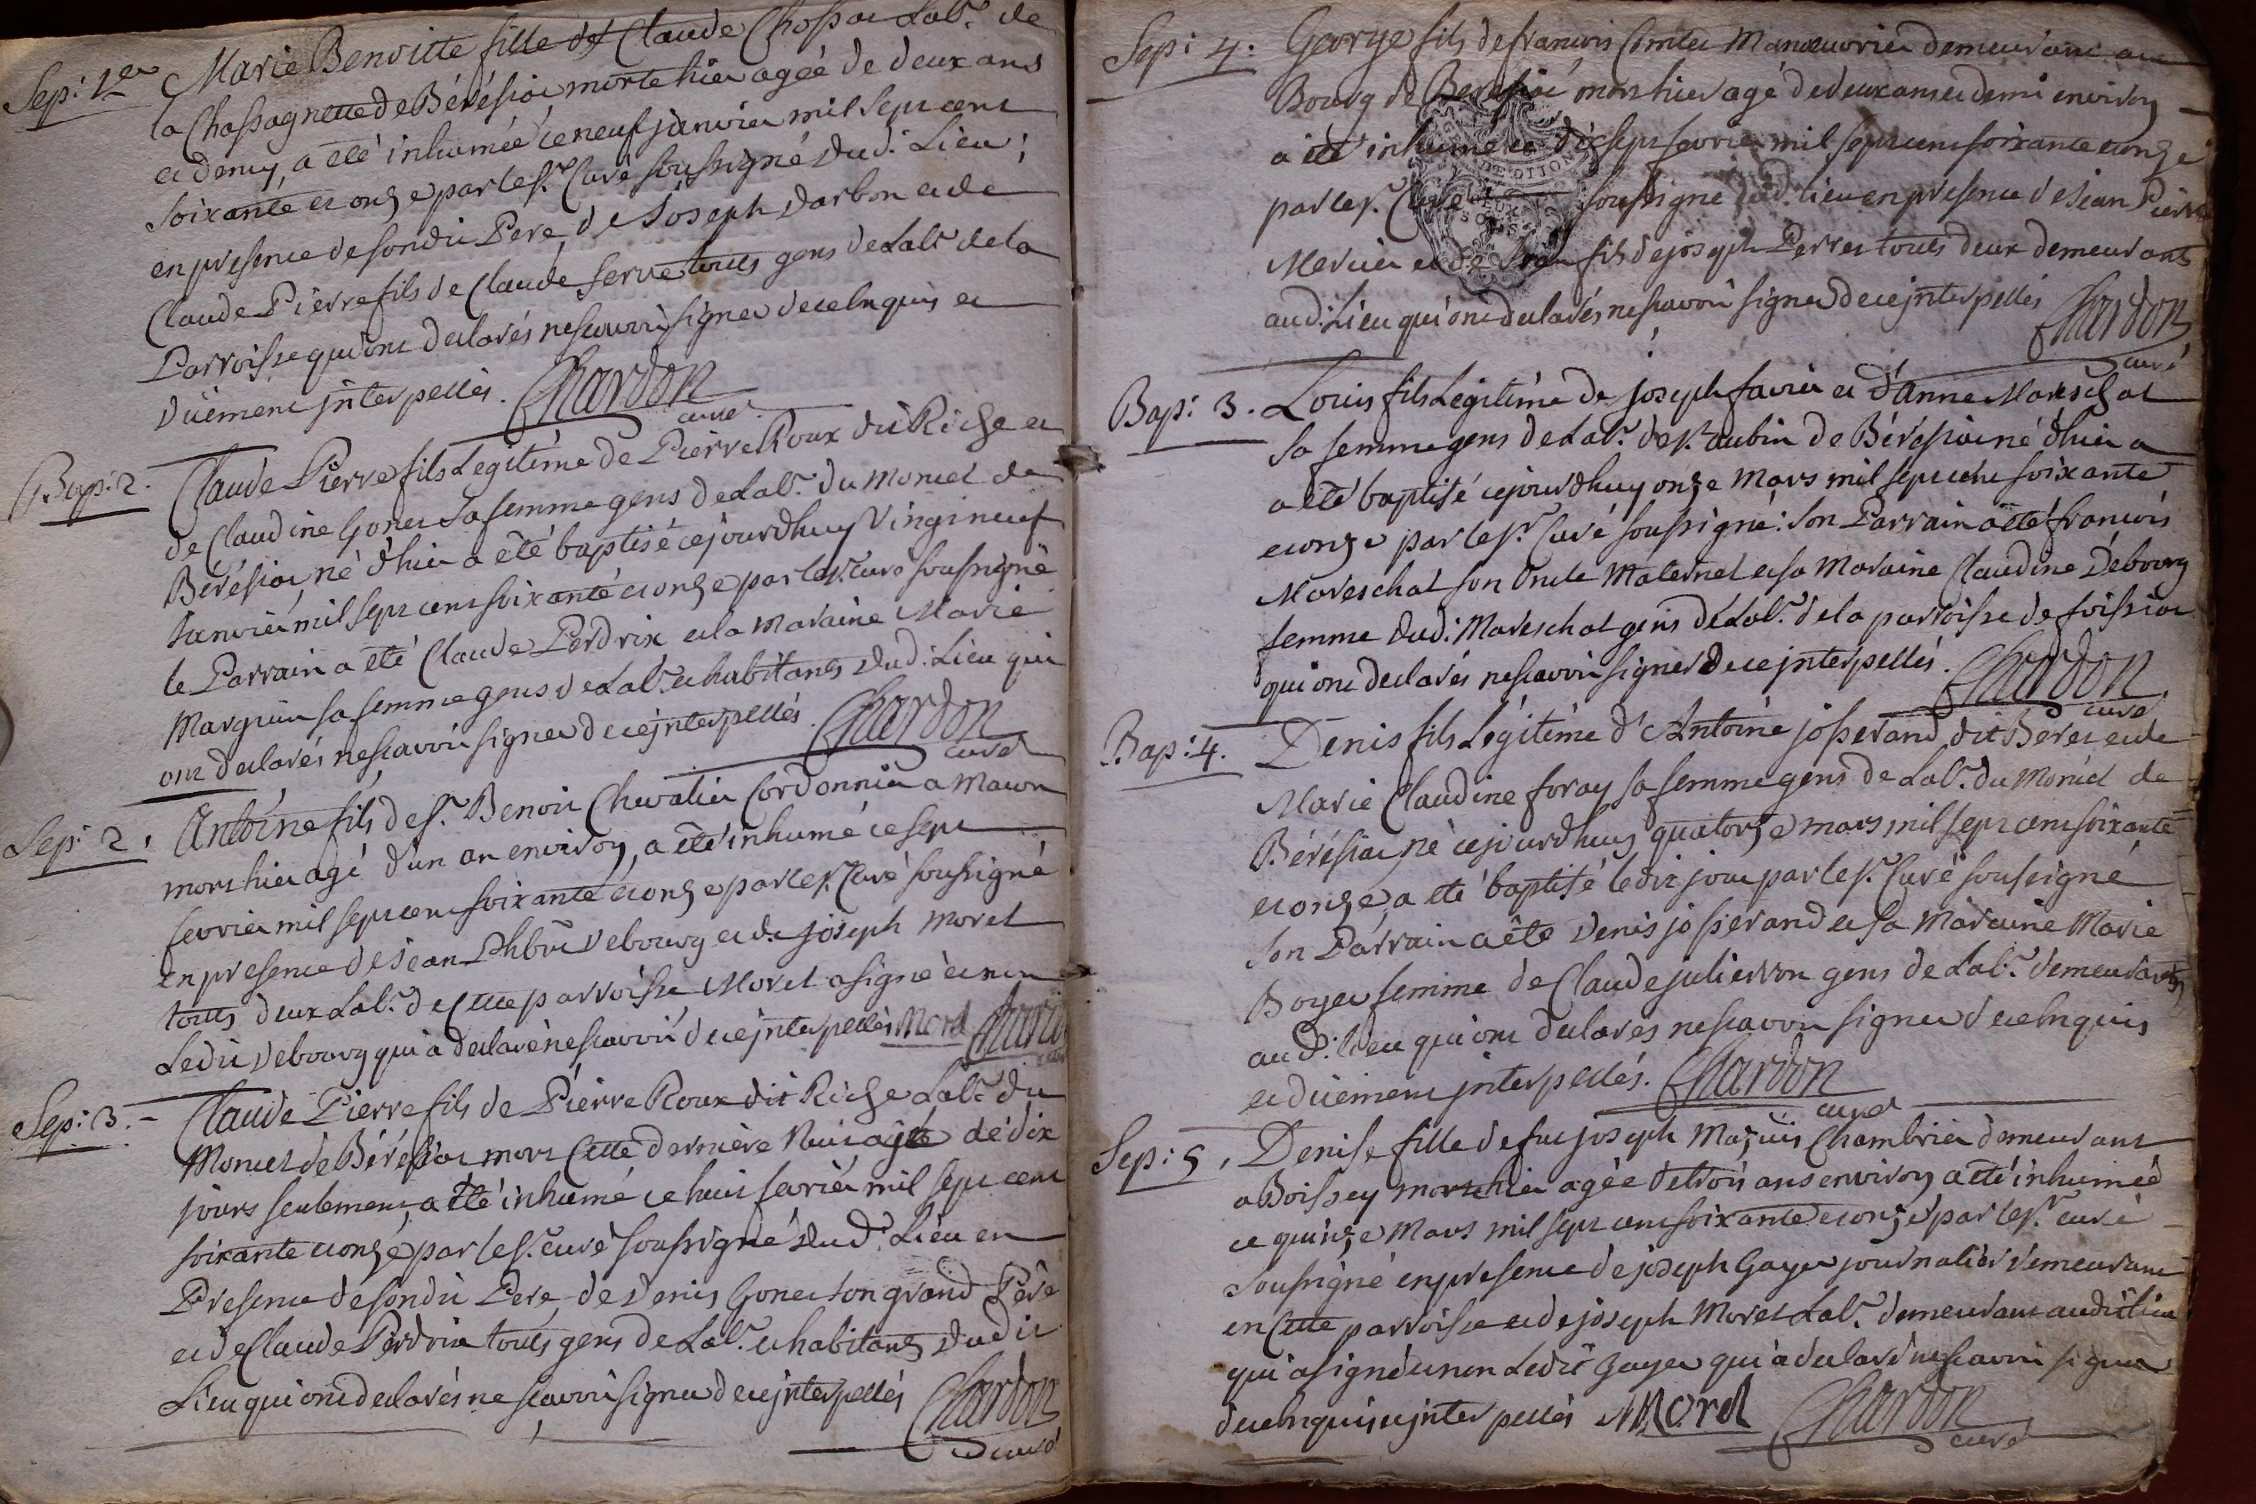 Sep: 1er Marie Benoitte fille de Claude Chossat Labr. de
la Chassagne de Bérésiat morte hier agée de deux ans
et demy, a été inhumée ce neuf janvier mil sept cent
soixante et onze par le sr. Curé soussigné dud. Lieu;
en presence de sondit Pere, de Joseph Darbon et de
Claude Pierre fils de Claude Serve touts gens de Labr. de la
Parroisse qui ont declarés ne sçavoir signer de ce enquis et
düement jnterpellés. Chardon
curé
Bap: 2. Claude Pierre fils Legitime de Pierre Roux dit Riche et
de Claudine Gonet sa femme gens de Labr. du Moncet de
Bérésiat, né d'hier a été baptisé cejourdhuy vingt neuf
Janvier mil sept cent soixante et onze par le sr. curé soussigné
le Parrain a été Claude Perdrix et la Maraine Marie
Marguin sa femme gens de Labr. et habitants dud: Lieu qui
ont declarés ne sçavoir signer de ce jnterpellés. Chardon
curé
Sep: 2. Antoine fils de sr. Benoit Chevalier Cordonnier a Macon
mort hier agé d'un an environ, a été inhumé ce sept
fevrier mil sept cent soixante et onze par le sr. Curé soussigné
en presence de Jean Phbert Debourg et de joseph Morel
touts deux Labr. de Cette parroisse Morel a signé et non
Ledit Debourg qui a declaré ne sçavoir de ce jnterpellés Morel Chardon
Sep: 3. Claude Pierre fils de Pierre Roux dit Riche Labr. du
Moncet de Bérésiat mort Cette derniére Nuit agé de dix
jours seulement, a été inhumé ce huit fevrier mil sept cent
soixante et onze par le sr. curé soussigné dud. Lieu en
Presence de sondit Pere, de Denis Gonet son grand Pére
et de Claude Perdrix touts gens de Labr. et habitants dudit
Lieu qui ont declarés ne sçavoir signer de ce jnterpellés Chardon
curé
Sep: 4. George fils de francois Comte Manouvrier demeurant au
Bourg de Beresiat mort hier agé de deux ans et demi environ
a été inhumé ce dix sept fevrier mil sept cent soixante et onze
par le sr. Curé soussigné dud. lieu en presence de Jean Pierre
Mercier et de fils de joseph Perret touts deux demeurants
aud: Lieu qui ont declarés ne sçavoir signer de ce jnterpellés Chardon
curé
Bap: 3. Louis fils Legitime de joseph favier et d'Anne Mareschal
sa femme gens de Labr. de st. aubin de Bérésiat né d'hier a
a été baptisé cejourdhuy onze Mars mil sept cent soixante
et onze par le sr. Curé soussigné: son Parrain a été francois
Mareschal son Oncle Maternel et sa Maraine Claudine Debourg
femme dud: Mareschal gens de Labr. de la parroisse de foissiat
qui ont declarés ne sçavoir signer de ce jnterpellés. Chardon
curé
Bap: 4. Denis fils Légitime d'Antoine josserand dit Beret et de
Marie Claudine foray sa femme gens de Labr. du Moncet de
Bérésiat né cejourdhuy quatorze mars mil sept cent soixante
et onze, a été baptisé ledit jour par le sr. Curé soussigné
son Parrain a été Denis josserand et sa Maraine Marie
Boyer femme de Claude julierron gens de Labr. demeurants
aud: lieu qui ont declarés ne sçavoir signer de ce enquis
et düement jnterpellés. Chardon
curé
Sep: 5. Denise fille de feu joseph Maçuis Chambrier demeurant
a Boissey morte hier agée de trois ans environ a été inhumée
ce quinze Mars mil sept cent soixante et onze par le sr. curé
soussigné en presence de joseph Gayer journalier demeurant
en Cette parroisse et de joseph Morel Labr. demeurant audit lieu
qui a signé et non Ledit Gayer qui a declaré ne sçavoir signer
de ce enquis et jnterpellés Morel Chardon
curé